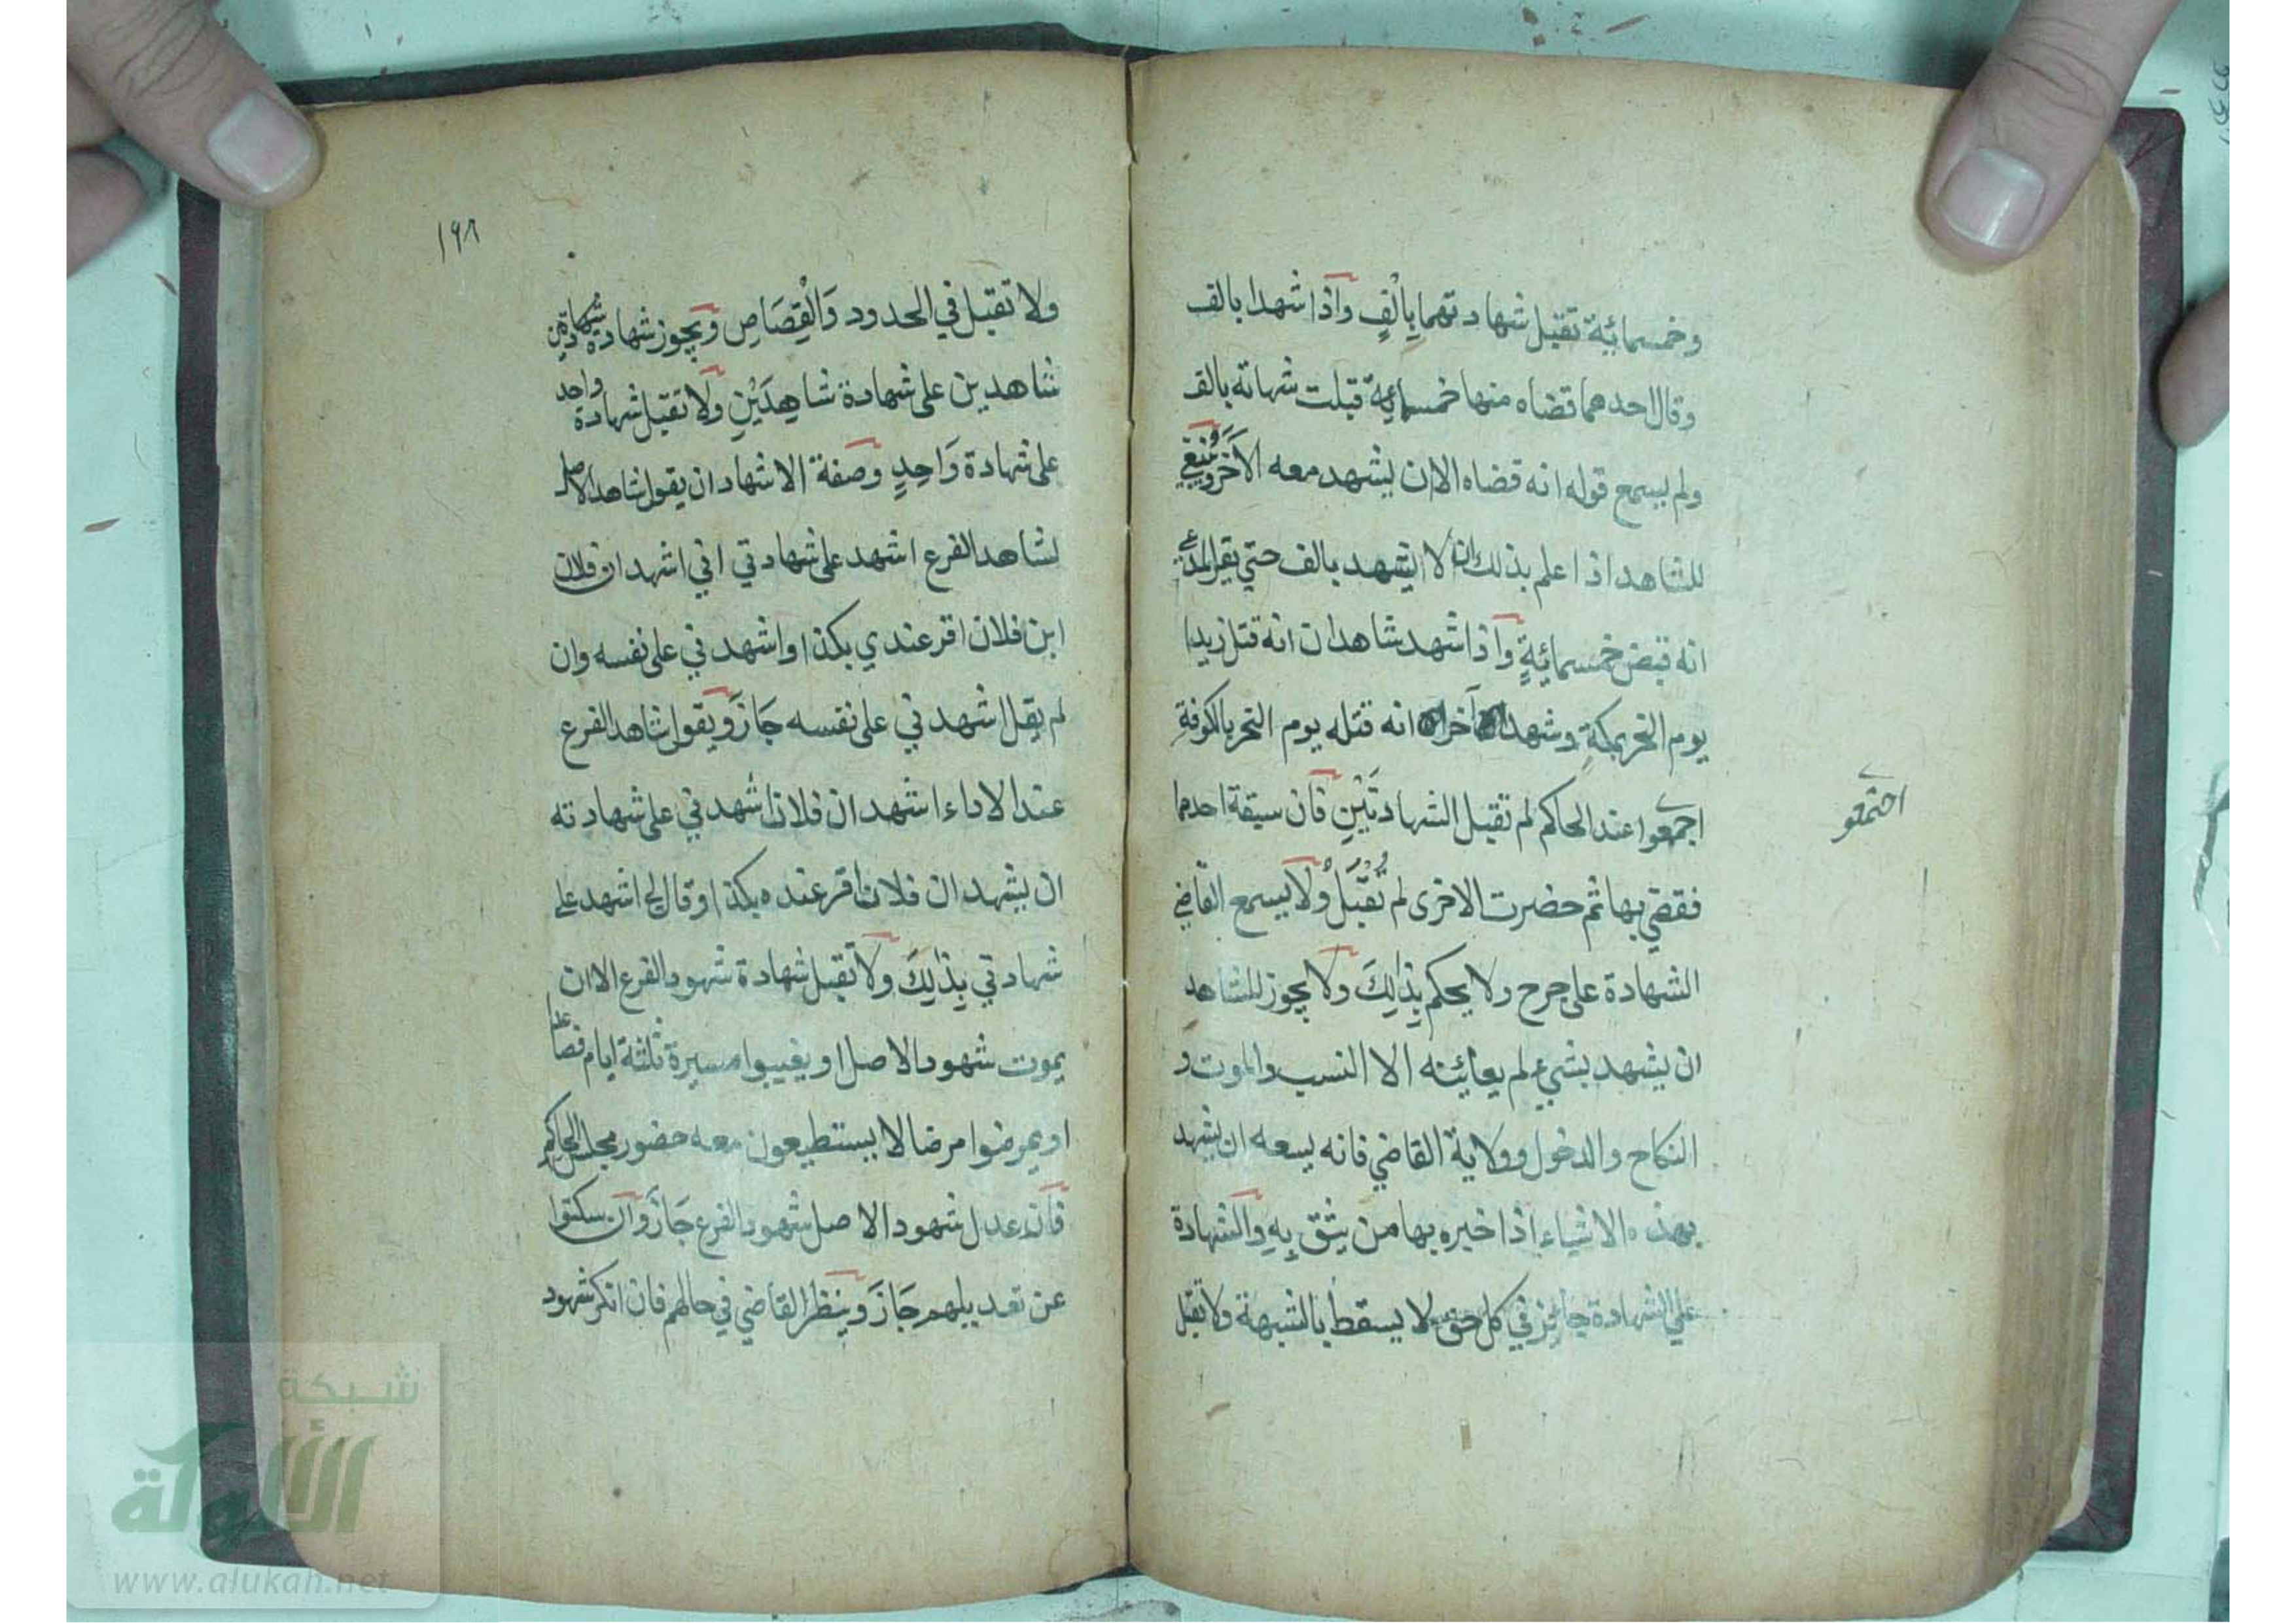 وخمسمائة تقبل شهادتهما بِاَلْفٍ واذا شهدا بالف
وقال احدهما قضاه منها خمسمائة قبلت شهاته بالف
ولم يسمع قوله انه قضاه الا ان يشهد معه الاَخَرُ وينبغي
للشاهد اذا علم بذلك ان لا يشهد بالف حتي يقر المدعي
انه قبض خمسمائةٍ واذا شهد شاهدان انه قتل زيدا
يوم النحر بمكةِ وشهد آخران انه قتله يوم النحر بالكوفةِ
اجمعوا عند الحاكم لم تقبل الشهادتَيْنِ فان سبقة احدهما
اجتمعو
فقضي بها ثم حضرت الاخرى لم تُقْبَلْ ولا يسمع القاضي
الشهادة على جرح ولا يحكم بِذٰلِكَ ولا يجوز للشاهد
ان يشهد بشيء لم يعاينه الا النسب والموت و
النكاح والدخول وولاية القاضي فانه يسعه ان يشهد
بهذه الاشياء اذا خبره بها من يثق بِهِ والشهادة
علي الشهادة جايز في كل حق لا يسقط بالشبهة ولا تقبل
١٩٨
ولا تقبل في الحدود وَالْقِصَاصِ ويجوز شهادة شهادة
شاهدين على شهادة شاهِدَيْنِ ولا تقبل شهادة واحد
على شهادة وَاحِدٍ وصفة الاشهاد ان يقول شاهد الاصل
لشاهد الفرع اشهد على شهادتي اني اشهد ان فلان
ابن فلان اقر عندي بكذا واشهدني على نفسه وان
لم يقل اشهدني على نفسه جَازَ ويقول شاهد الفرع
عند الاداء اشهد ان فلانا اشهدني على شهادته
ان يشهد ان فلانا اقر عنده بكذا وقال لي اشهد على
شهادتي بِذٰلِكَ ولا تقبل شهادة شهود الفرع الا ان
يموت شهود الاصل او يغيبوا مسيرة ثلثة ايام فصاعدا
او يمرضوا مرضا لا يستطيعون معه حضور مجلس الحاكم
فان عدل شهود الاصل شهود الفرع جَازَ وان سكتوا
عن تعديلهم جَازَ وينظر القاضي في حالهم فان انكر شهود
شبكة
الألوكة
www.alukah.net